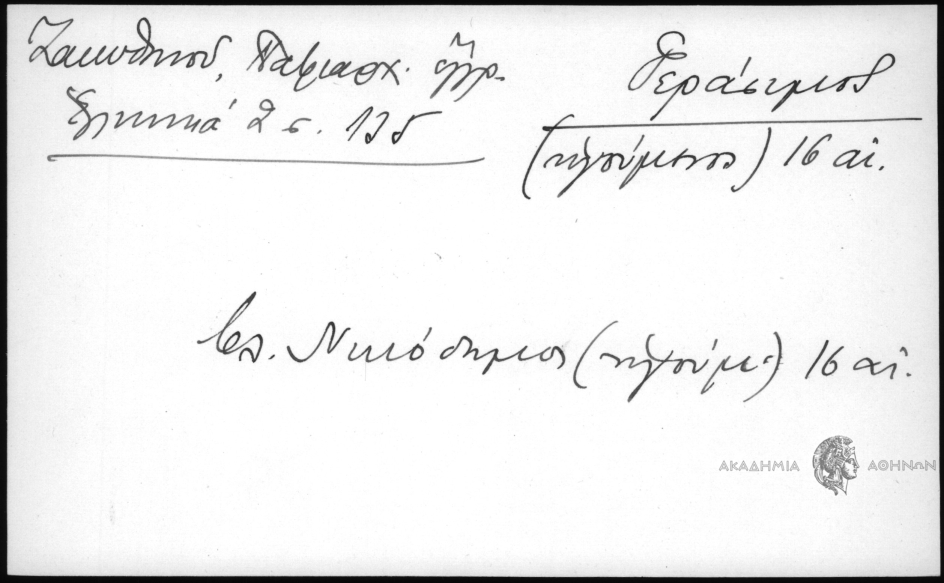 Ζακυθηνού, Πατριαρχ. ἔγγρ.
Ἑλληνικά 2 σ. 135
Γεράσιμος
(ηγούμενος) 16 αἰ.
βλ. Νικόδημος (ηγούμ.) 16 αἰ.
ΑΚΑΔΗΜΙΑ ΑΘΗΝΩΝ